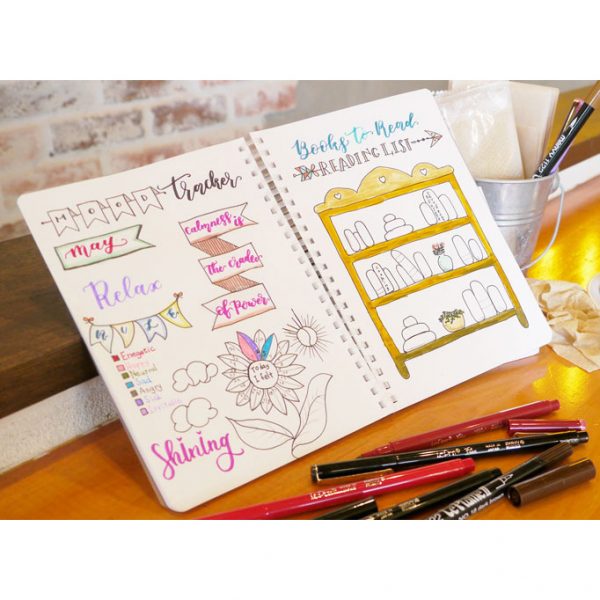 MOOD tracker
May
Calmness is
the cradle
of Power
Relax
RULE
Energetic
Happy
Neutral
Sad
Angry
Irritable
Today
I felt
Shining
Books to Read
READING LIST